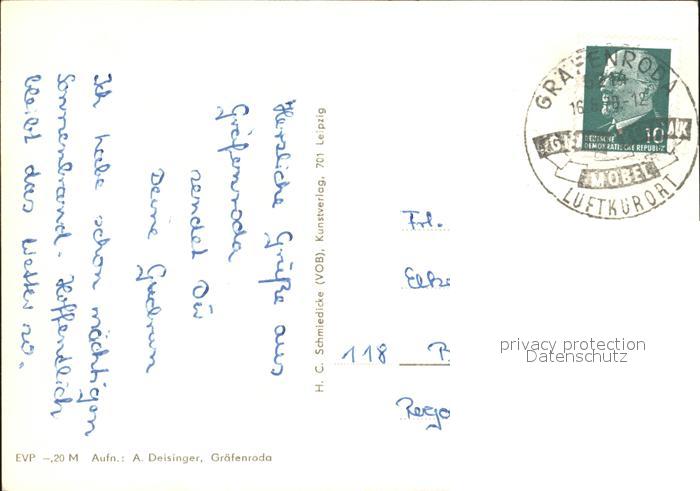 Herzliche Grüße aus
Gräfenroda
sendet Dir
Deine Gudrun
Ich habe schon mächtigen
Sonnenbrand. Hoffentlich
bleibt das Wetter so.
H. C. Schmiedicke (VOB), Kunstverlag, 701 Leipzig
GRÄFENRODA
16
-12
10
DEUTSCHE
DEMOKRATISCHE REPUBLIK
MÖBEL
LUFTKURORT
Frl.
118
privacy protection
Datenschutz
EVP –,20 M Aufn.: A. Deisinger, Gräfenroda